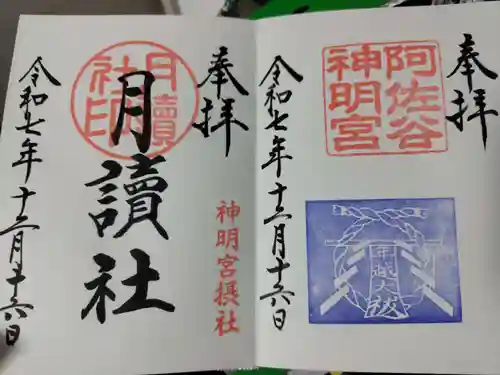 奉拝
阿佐谷
神明宮
年越大祓
令和七年十二月十六日
奉拝
月讀
社印
月讀社
神明宮摂社
令和七年十二月十六日